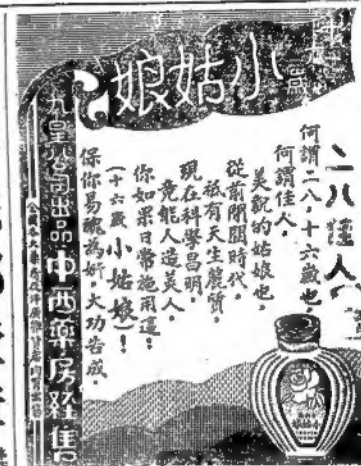 十六歲
小姑娘
二八佳人
何謂二八，十六歲也，
何謂佳人，
美貌的姑娘也，
從前閉關時代，
祇有天生麗質，
現在科學昌明，
竟能人造美人，
你如果日常施用這：
(十六歲小姑娘)！
保你易醜為妍，大功告成，
九星公司出品 中西藥房經售
全國各大藥房及洋廣雜貨店均有出售